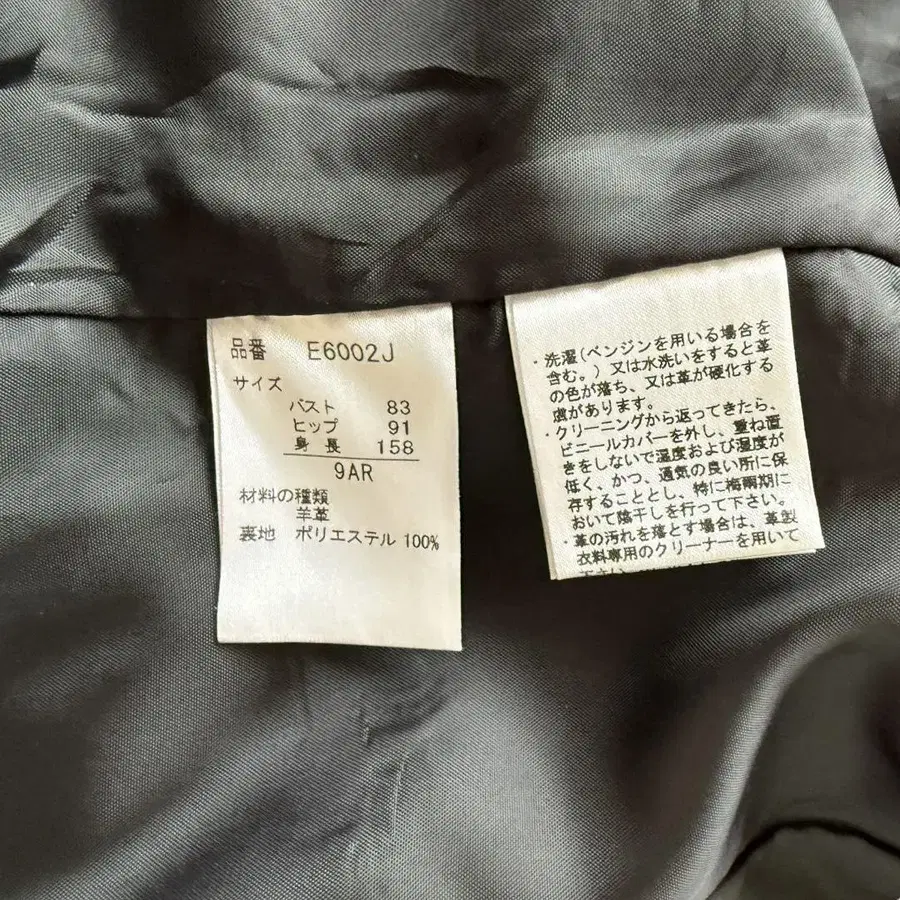 品番 E6002J
サイズ
バスト 83
ヒップ 91
身長 158
9AR
材料の種類
羊革
裏地 ポリエステル 100%
・洗濯(ベンジンを用いる場合を
含む。)又は水洗いをすると革
の色が落ち、又は革が硬化する
虞があります。
・クリーニングから返ってきたら、
ビニールカバーを外し、重ね置
きをしないで温度および湿度が
低く、かつ、通気の良い所に保
存することとし、特に梅雨期に
おいて陰干しを行って下さい。
・革の汚れを落とす場合は、革製
衣料専用のクリーナーを用いて